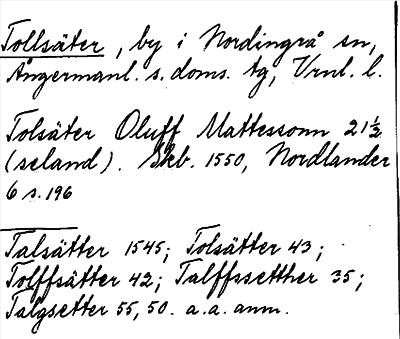 Tollsäter, by i Nordingrå sn,
Ångermanl. s. doms. tg, Vrnl. l.
Tolsäter Oluff Mattessonn 21½
(seland). Skb. 1550, Nordlander
6 s. 196
Talsätter 1545; Tolsätter 43;
Tolffsätter 42; Talffssetther 35;
Talgsetter 55, 50. a.a. anm.